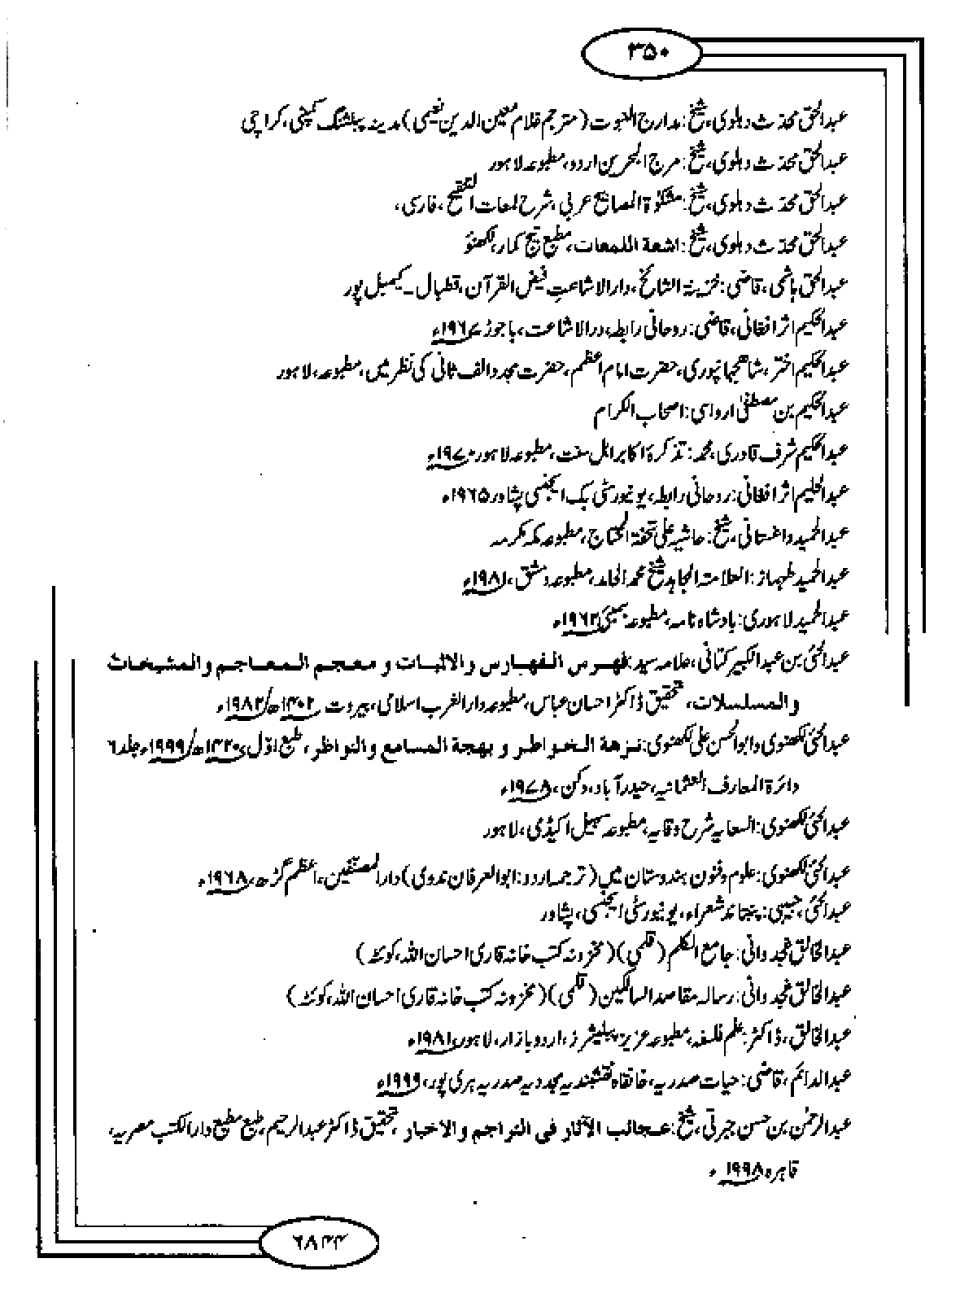 ۳۵۰
عبدالحق محدّث دہلوی، شیخ: مدارج النبوت (مترجم غلام معین الدین نعیمی) مدینہ پبلشنگ کمپنی، کراچی
عبدالحق محدّث دہلوی، شیخ: مرج البحرین اردو، مطبوعہ لاہور
عبدالحق محدّث دہلوی، شیخ: مشکوٰۃ المصابیح عربی، شرح لمعات التنقیح، فارسی،
عبدالحق محدّث دہلوی، شیخ: اشعۃ اللمعات، مطبع تیج کمار، لکھنؤ
عبدالحق ہاشمی، قاضی: خزینۃ الشائخ، دارالاشاعت فیض القرآن، قطبال۔ کیمبل پور
عبدالحکیم اثر افغانی، قاضی: روحانی رابطہ، درالاشاعت، باجوڑ ۱۹۶۷ء
عبدالحکیم اختر، شاہجہانپوری، حضرت امام اعظم، حضرت مجدد الف ثانی کی نظر میں، مطبوعہ، لاہور
عبدالحکیم بن مصطفیٰ ارواسی: اصحاب الکرام
عبدالحکیم شرف قادری، محمد: تذکرۂ اکابر اہل سنت، مطبوعہ لاہور، ۱۹۷۰ء
عبدالحلیم اثر افغانی: روحانی رابطہ، یونیورسٹی بک ایجنسی پشاور ۱۹۶۵ء
عبدالحمید داغستانی، شیخ: حاشیہ علی تحفۃ المحتاج، مطبوعہ مکہ مکرمہ
عبدالحمید طہماز: العلامۃ المجاہد شیخ محمد الحامد، مطبوعہ دمشق، ۱۹۸۱ء
عبدالحمید لاہوری: بادشاہ نامہ، مطبوعہ بمبئی ۱۹۶۲ء
عبدالحیٔ بن عبدالکبیر کتانی، علامہ سید: فهرس الفهارس والاثبات و معجم المعاجم والمشیخات
والمسلسلات، تحقیق ڈاکٹر احسان عباس، مطبوعہ دار الغرب اسلامی، بیروت ۱۴۰۲ھ/۱۹۸۲ء
عبدالحیٔ لکھنوی و ابوالحسن علی لکھنوی: نزهة الخواطر و بهجة المسامع والنواظر، طبع اوّل، ۱۴۲۰ھ/۱۹۹۹ء جلد ۶
دائرۃ المعارف العثمانیہ، حیدرآباد، دکن، ۱۹۷۸ء
عبدالحیٔ لکھنوی: السعایہ شرح وقایہ، مطبوعہ سہیل اکیڈمی، لاہور
عبدالحیٔ لکھنوی: علوم وفنون ہندوستان میں (ترجمہ اردو: ابوالعرفان ندوی) دارالمصنّفین، اعظم گڑھ، ۱۹۶۸ء
عبدالحیٔ، حبیبی: پنجاند شعراء، یونیورسٹی ایجنسی، پشاور
عبدالخالق غجدوانی: جامع الکلم (قلمی) (مخزونہ کتب خانہ قاری احسان اللہ، کوئٹہ)
عبدالخالق غجدوانی: رسالہ مقاصد السالکین (قلمی) (مخزونہ کتب خانہ قاری احسان اللہ، کوئٹہ)
عبدالخالق، ڈاکٹر: علم فلسفہ، مطبوعہ عزیز پبلیشرز، اردو بازار، لاہور، ۱۹۸۱ء
عبدالدائم، قاضی: حیات صدریہ، خانقاہ نقشبندیہ مجددیہ صدریہ ہری پور، ۱۹۹۹ء
عبدالرحمٰن بن حسن جبرتی، شیخ: عجائب الآثار فی التراجم والاخبار، تحقیق ڈاکٹر عبدالرحیم، طبع مطبع دارالکتب مصریہ،
قاہرہ ۱۹۹۸ء
۶۸۴۴